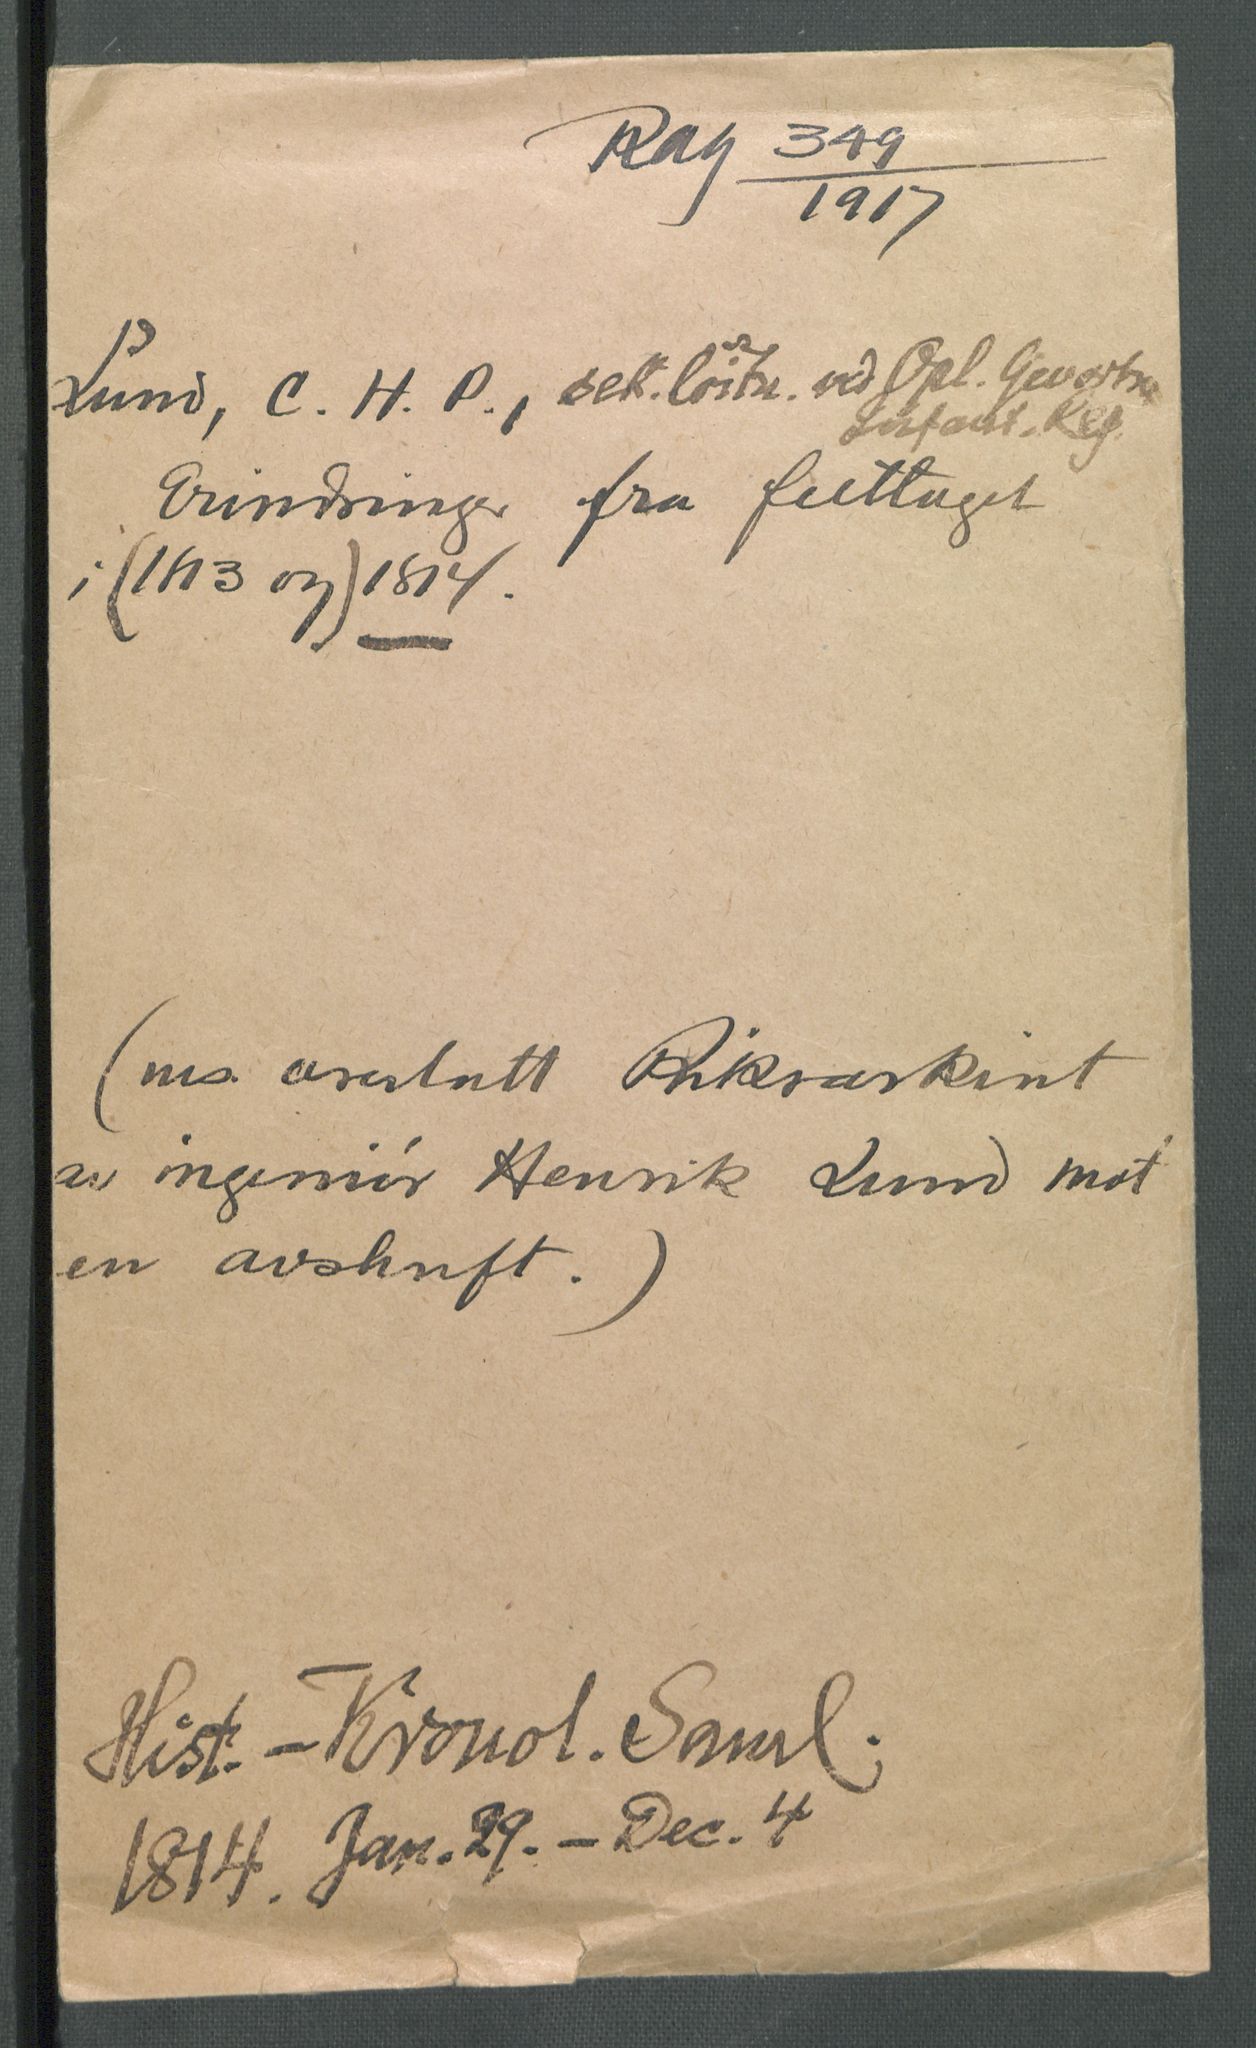 Rag 349
1917
Lund, C. H. P., sek. löitn. ved Opl. Gevorbne
Infant. Reg.
Erindringer fra felttoget
i (1813 og) 1814.
(ms. overlatt Riksarkivet
av ingeniör Henrik Lund mot
en avskrift.)
Hist.-Kronol. Saml.
1814. Jan. 29. - Dec. 4